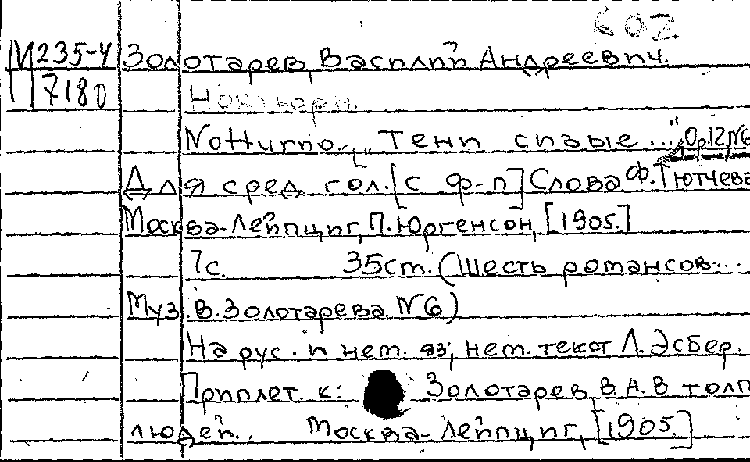 602
М235-4 Золотарев, Василий Андреевич.
7180
Ноктюрн.
Notturno. „Тени сизые...", Op.12, N6
Для сред. гол. [с ф-п] Слова Ф. Тютчева
Москва-Лейпциг, П. Юргенсон, [1905.]
7с. 35cm. (Шесть романсов...
Муз. В. Золотарева N6)
На рус. и нем. яз, нем. текст Л. Эсбер.
Приплет к: Золотарев, В. А. В толп
людей. Москва-Лейпциг, [1905.]